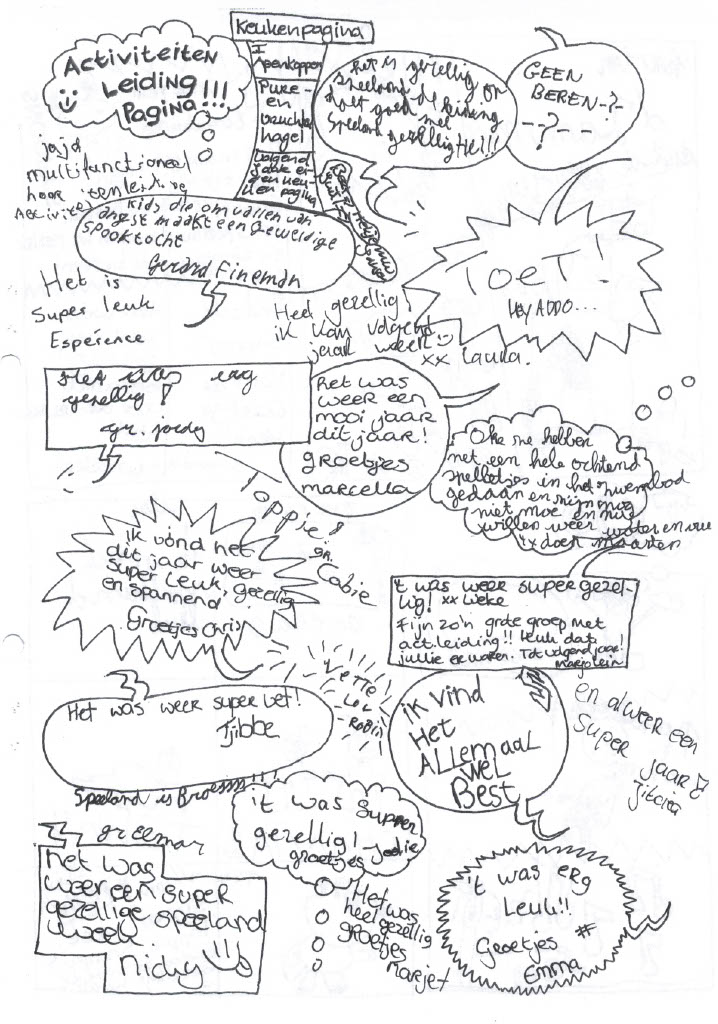 Keukenpagina
Activiteiten
Leiding
Pagina!!!
I
Apenkoppen
Puree-
en
hagel
jaja
multifunctioneel
hoor
het is gezellig
gezellig
GEEN
BEREN-?-
--?--
kids die omvallen van
angst maakt een geweldige
spooktocht
Gerard Fineman
TOET!
HEY ADDO...
Het is
Super leuk
Esperience
Heel gezellig!
ik kom volgend
jaar weer
xx Laura.
Het was erg
gezellig!
gr. joedy
het was
weer een
mooi jaar
dit jaar!
groetjes
marcella
Oke we hebben
net een hele ochtend
spelletjes in het zwembad
gedaan en zijn nog
niet moe en nu
willen weer water en vuur
doen maarten
Toppie!
gr. Cobie
ik vond het
dit jaar weer
super leuk, gezellig
en spannend
Groetjes Chris
't was weer super gezel-
lig! xx Lieke
Fijn zo'n grote groep met
act.leiding!! leuk dat
jullie er waren. Tot volgend jaar!
Marjolein
Vette
Lol
-Robin
Het was weer super vet!
Tjibbe
Speeland is
ik vind
Het
ALLEMAAL
WEL
BEST
en alweer een
super
jaar!
't was supper
gezellig!
groetjes
het was
weer een super
gezellige speeland
week
nicky
Het was
heel gezellig
groetjes
marjet
't was erg
Leuk!!
Groetjes
Emma